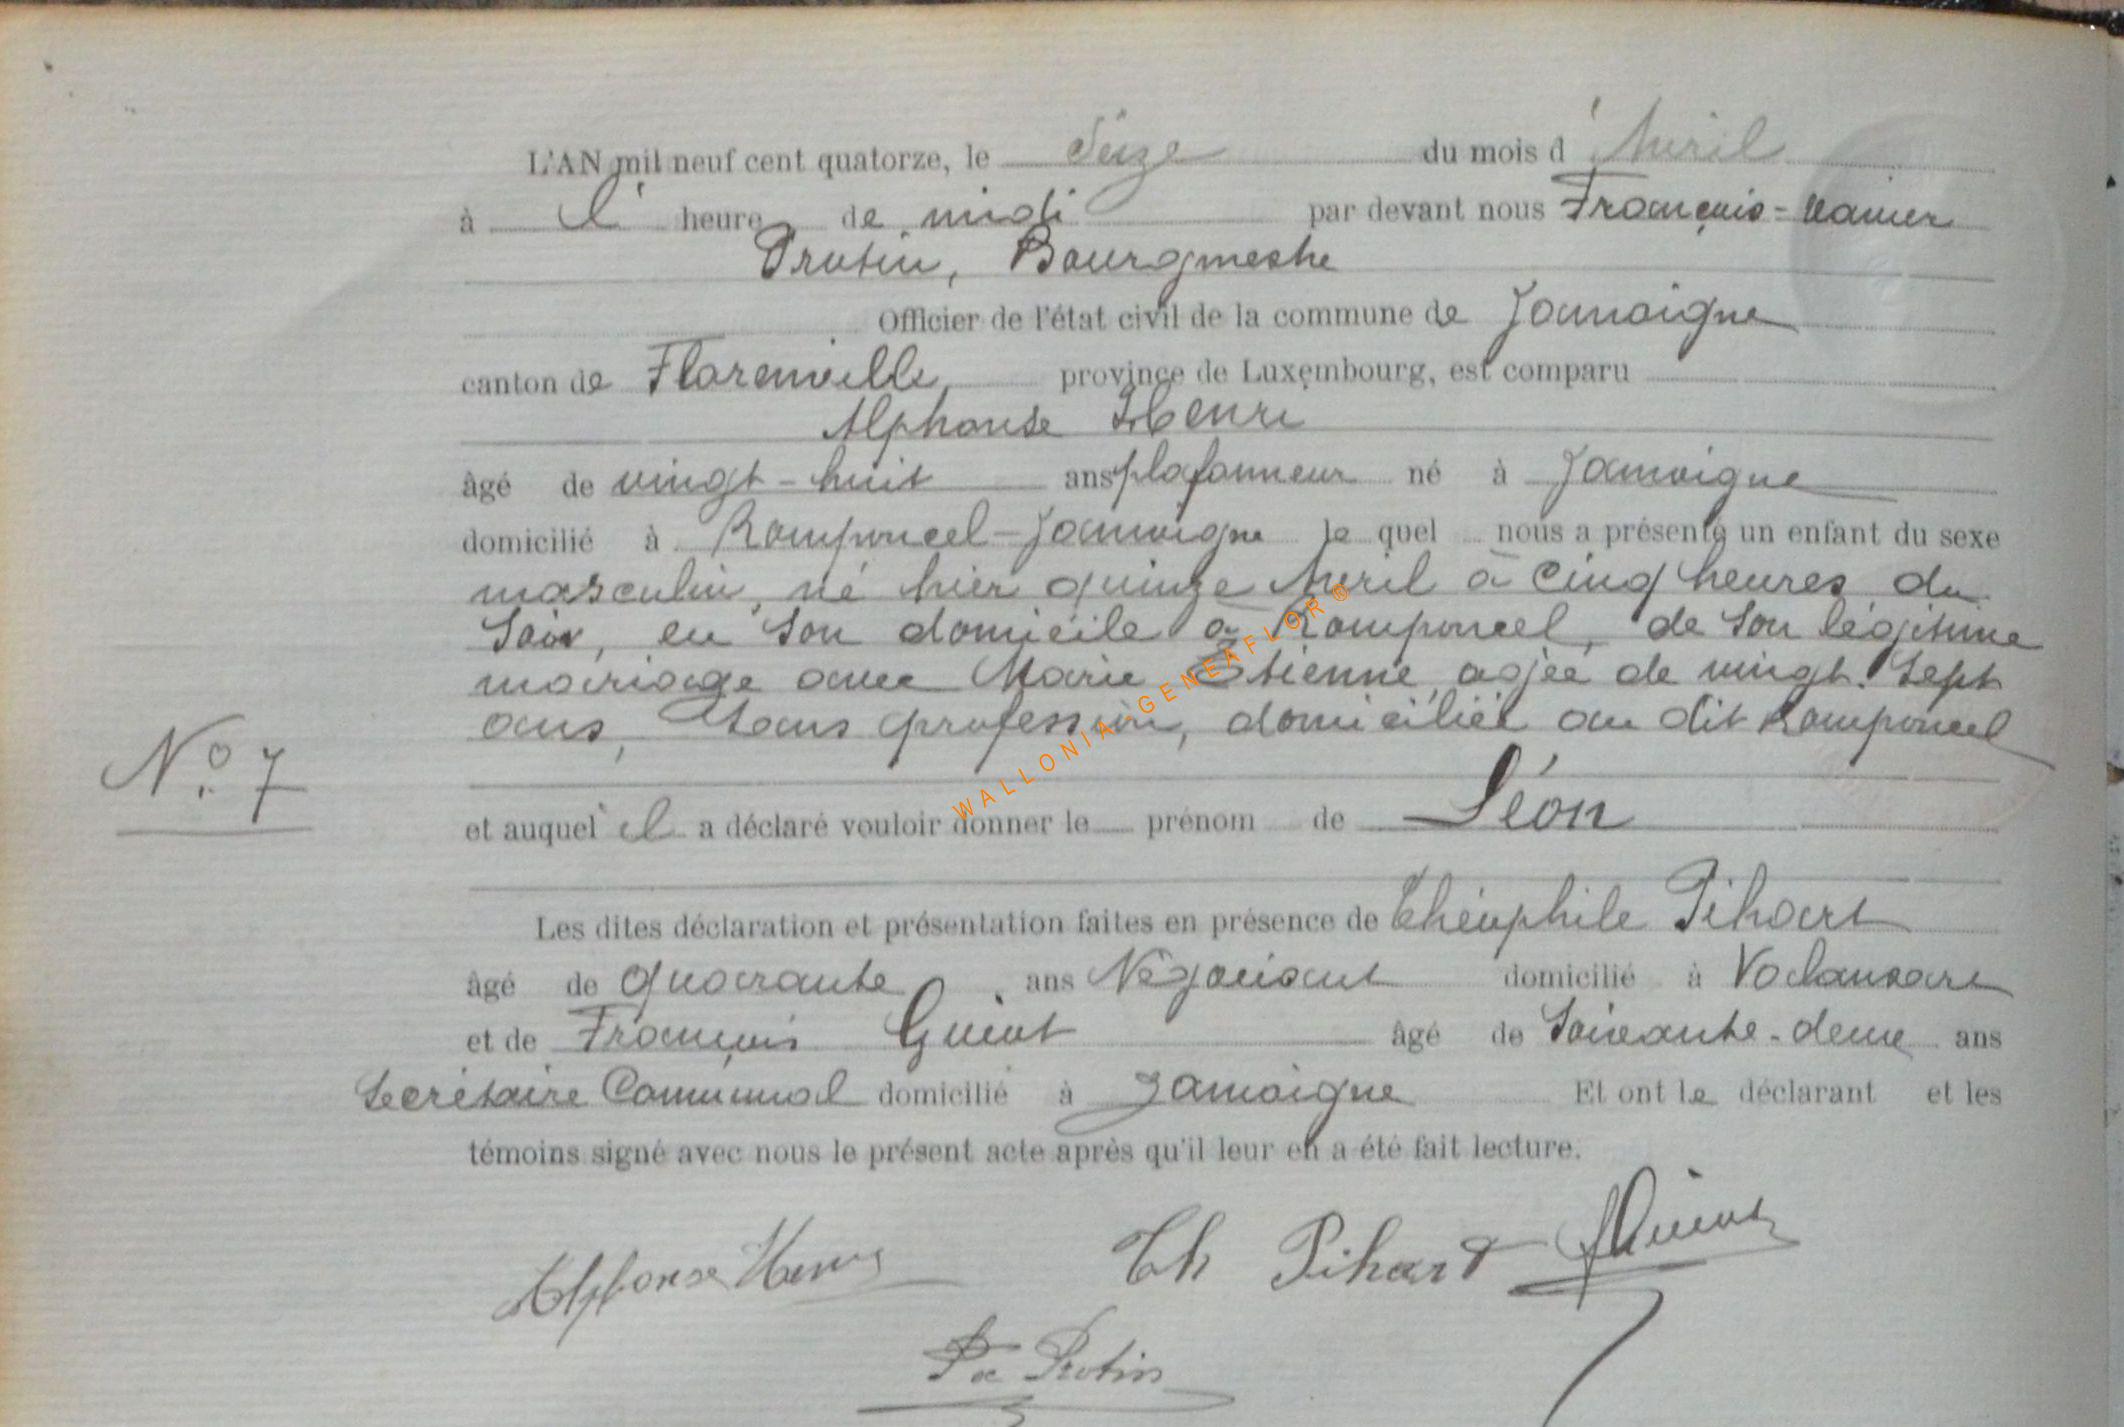 L'AN mil neuf cent quatorze, le Seize du mois d'Avril
à l' heure de midi par devant nous François-Xavier
Protin, Bourgmestre
Officier de l'état civil de la commune de Jamoigne
canton de Florenville, province de Luxembourg, est comparu
Alphonse Henri
âgé de vingt-huit ans plafonneur né à Jamoigne
domicilié à Romponcel-Jamoigne le quel nous a présenté un enfant du sexe
masculin, né hier quinze Avril à cinq heures du
Soir, en Son domicile à Romponcel, de Son légitime
mariage avec Marie Etienne, agée de vingt-Sept
ans, Sans profession, domiciliée au dit Romponcel
N° 7
et auquel il a déclaré vouloir donner le prénom de Léon
Les dites déclaration et présentation faites en présence de Théophile Pihart
âgé de quarante ans Négociant domicilié à Valansart
et de François Guiot âgé de Soixante-deux ans
Secrétaire Communal domicilié à Jamoigne Et ont le déclarant et les
témoins signé avec nous le présent acte après qu'il leur en a été fait lecture.
Alphonse Henri Th Pihart FGuiot
Protin
WALLONIA-GENEAFLOR®